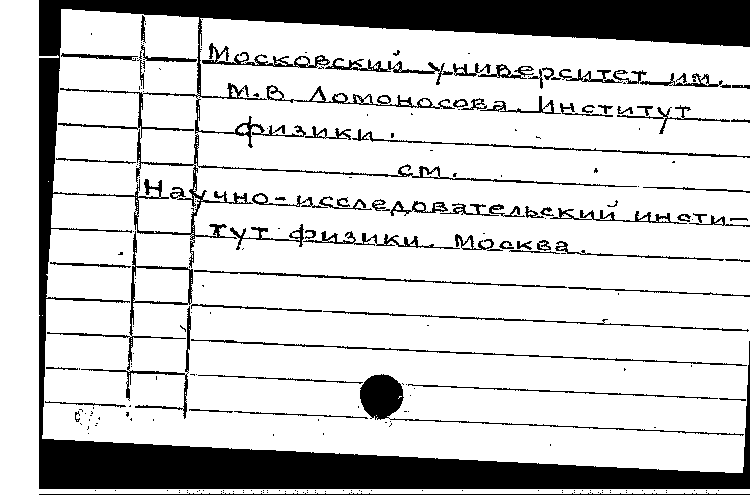 Московский университет им.
М.В. Ломоносова. Институт
физики.
см.
Научно-исследовательский инсти-
тут физики. Москва.